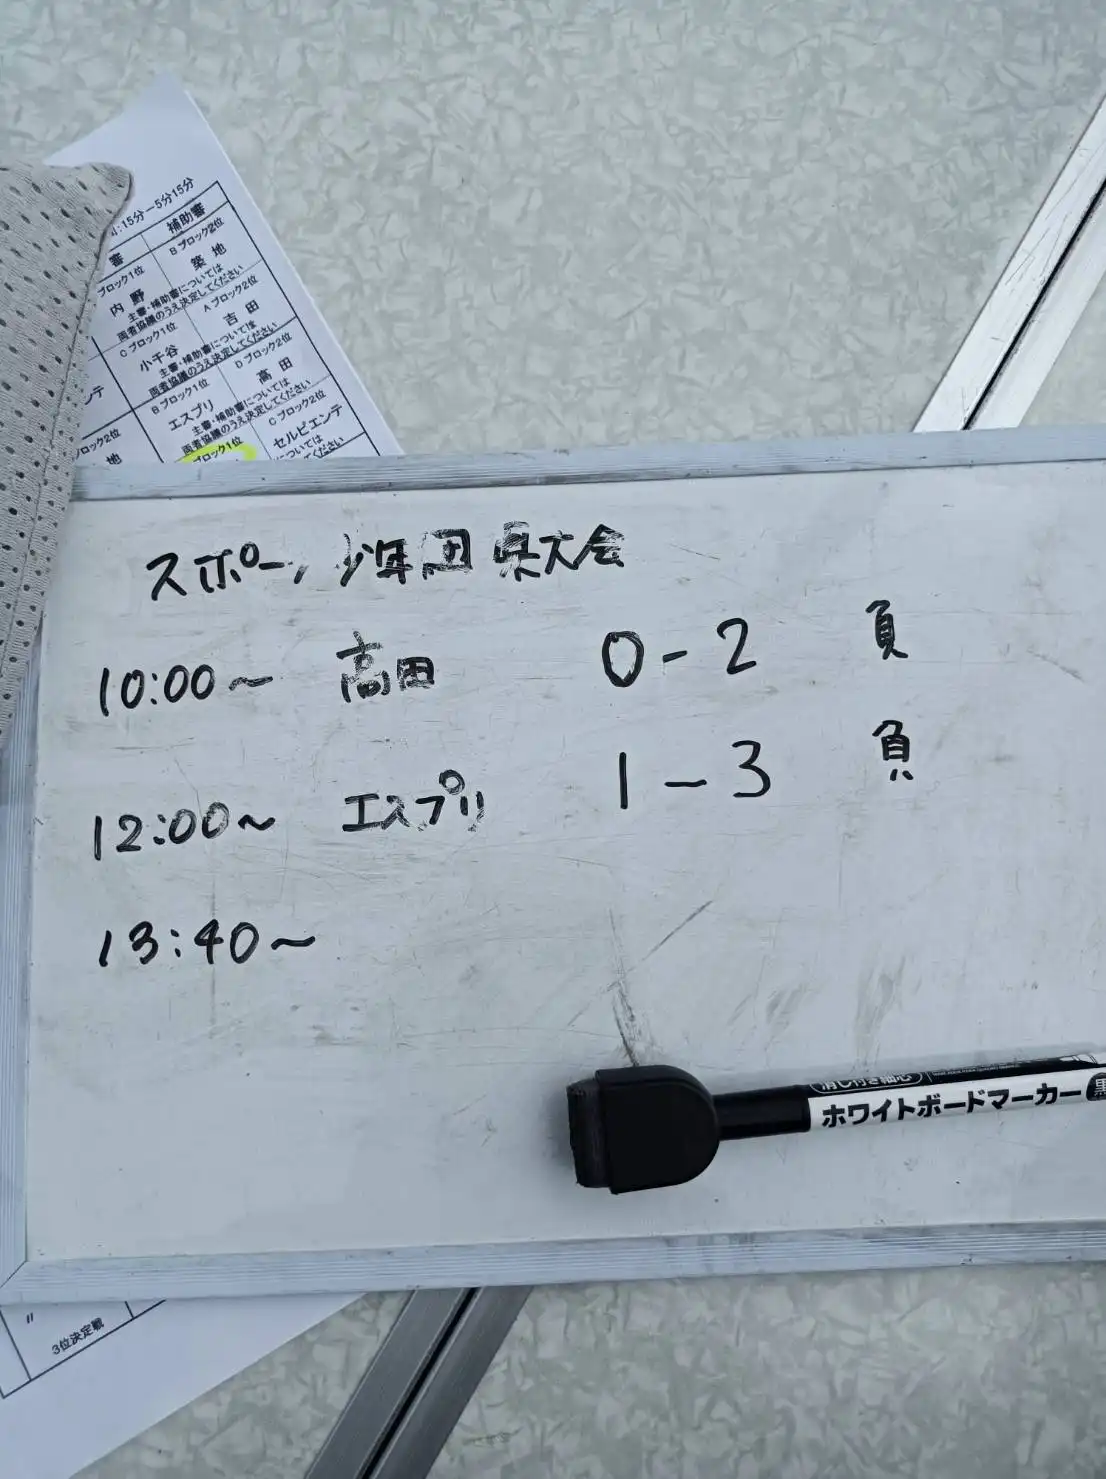 :15分ー5分15分
審 補助審
ブロック1位 Bブロック2位
内野 築地
主審・補助審については
両者協議のうえ決定してください
Cブロック1位 Aブロック2位
小千谷 吉田
主審・補助審については
両者協議のうえ決定してください
Bブロック1位 Dブロック2位
ンテ エスプリ 高田
主審・補助審については
両者協議のうえ決定してください
ロック2位 ブロック1位 Cブロック2位
地 セルピエンテ
については
てください
スポーツ少年団県大会
10:00～ 高田 0-2 負
12:00～ エスプリ 1-3 負
13:40～
消し付き細芯
ホワイトボードマーカー 黒
〃
3位決定戦